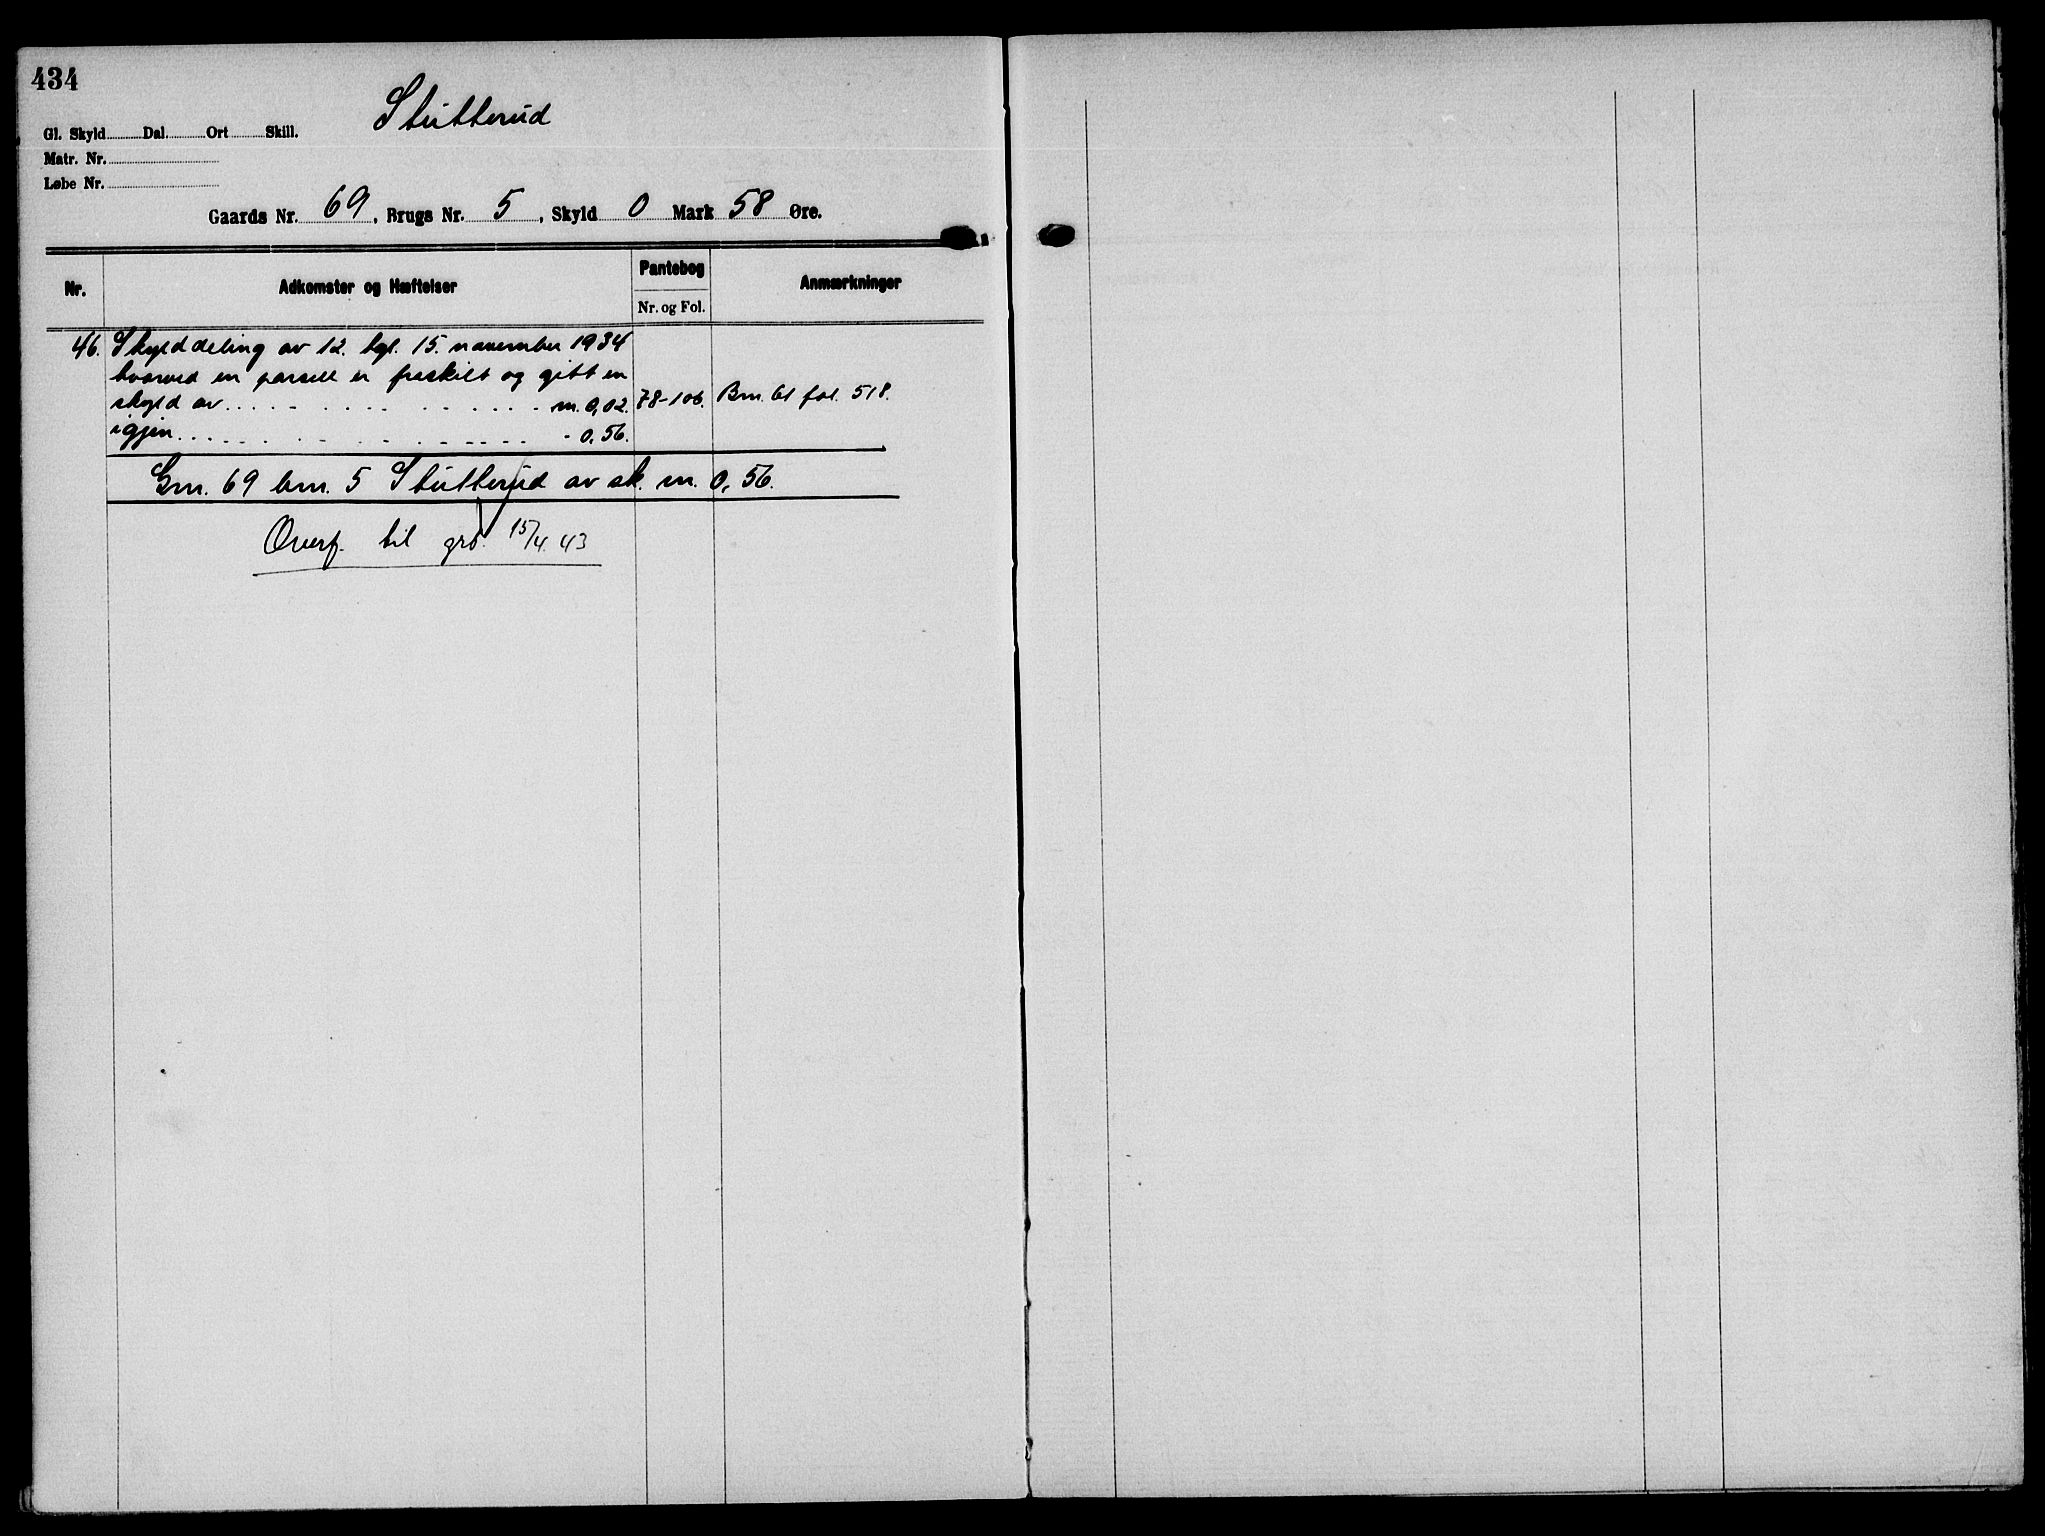 434
Stutterud
Gl. Skyld Dal Ort Skill.
Matr. Nr.
Løbe Nr.
Gaards Nr. 69, Brugs Nr. 5, Skyld 0 Mark 58 Øre.
Nr. Adkomster og Hæftelser Pantebog Anmærkninger
Nr. og Fol.
46. Skylddeling av 12. tgl. 15. november 1934
hvorved en parsell er fraskilt og gitt en
skyld av . . . . . . . . . . m. 0,02. 78-106. Bnr. 61 fol. 518.
igjen . . . . . . . . . . - 0,56.
Gnr. 69 bnr. 5 Stutterud av sk. m. 0,56.
Overf. til grb. 15/4. 43